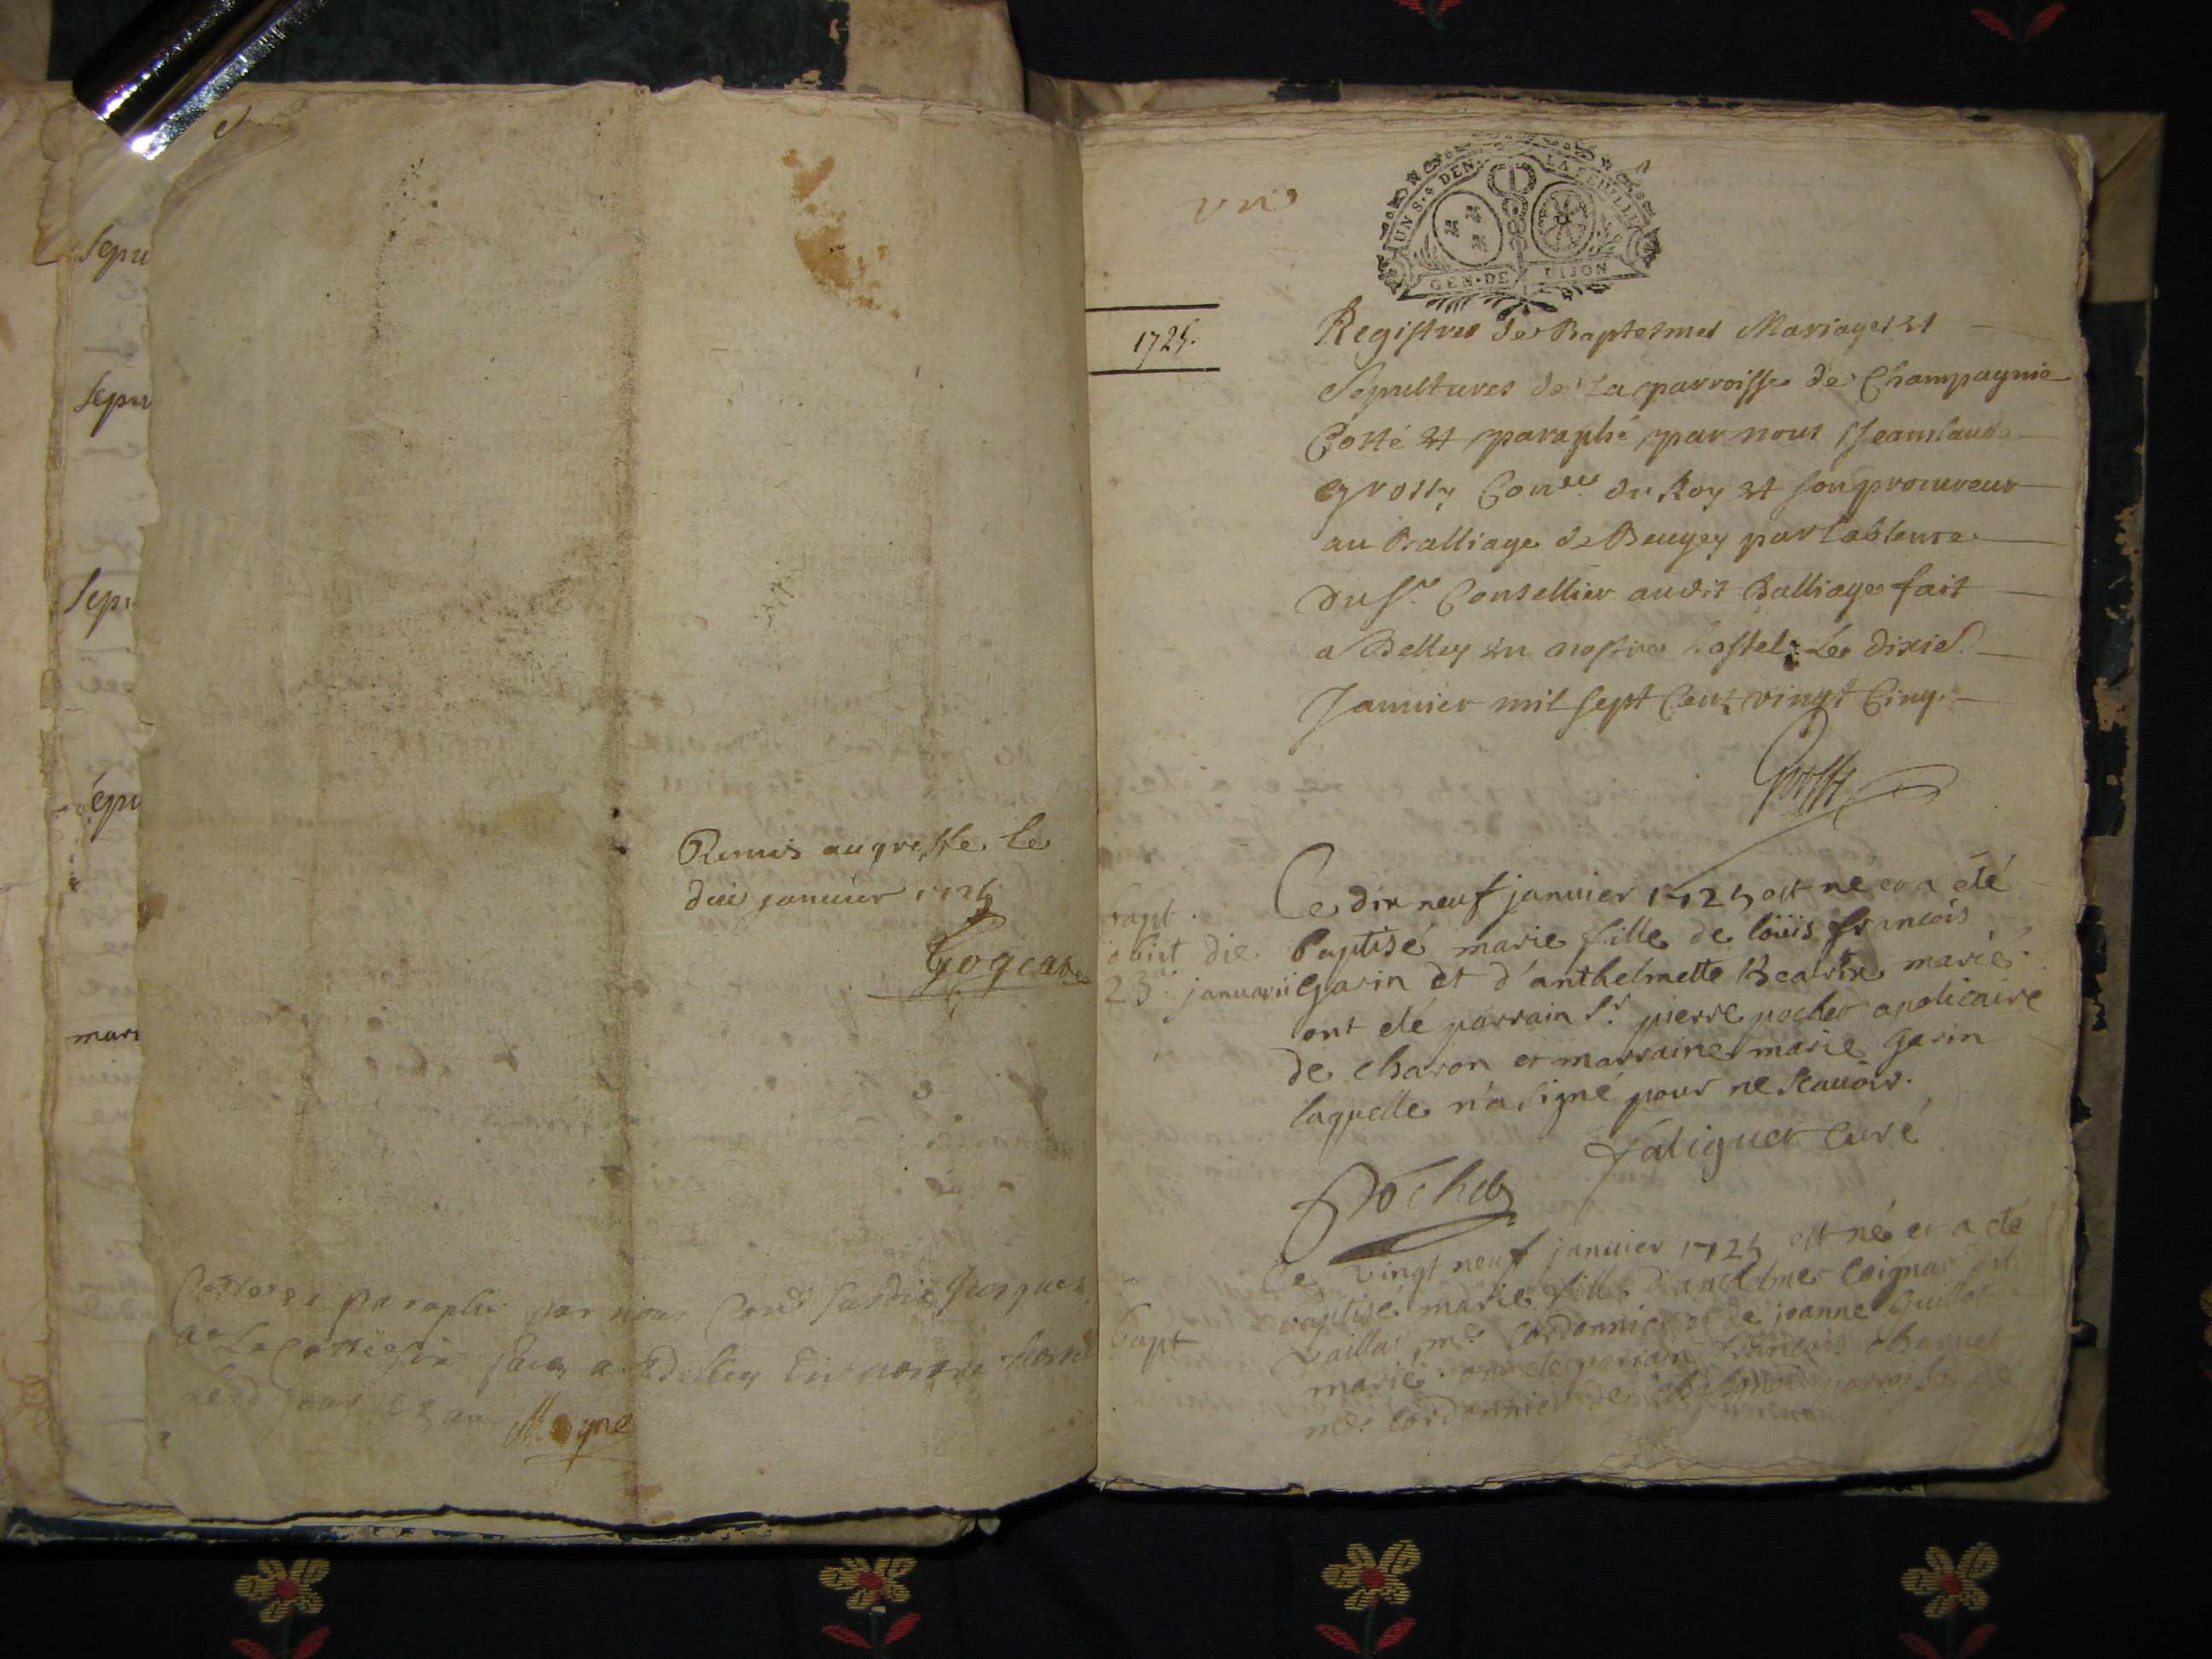 Sepu
Sepu
Sepu
Sépu
mari
Remis au greffe le
dix janvier 1725
Cottes et paraphé par nous
fait a Belley En nostre hostel
Moyne
un
UN S. 4 DEN. LA FEUILLE
GEN. DE DIJON
1725.
Registres des Baptesmes Mariages et
Sepultures de La parroisse de Champagnie
Cotté et paraphé par nous Jeanlaude
Grossy Con.er du Roy et son procureur
au Balliage de Beugey par labsence
du Sr. Consellier audit Balliage fait
a Belley en nostre hostel Le dixie
Janvier mil sept Cent vingt Cinq.
Grossy
bapt.
obiit die
23a januarii
Ce dix neuf janvier 1725 est né et a été
baptisé marie fille de loüis françois
garin et d'anthelmette Beatrix mariés
ont eté parrain Sr. pierre pochet apoticaire
de charon et marraine marie garin
laquelle n'a signé pour ne sçauoir.
faliguet Curé
Pochet
bapt
Ce vingt neuf janvier 1725 est né et a eté
baptisé marie fille d'anthelme Coignat dit
Vaillat, me. Cordonnier et de jeanne Guillot
mariés ont eté parrain françois charuet
me. Cordonnier de parroisse de